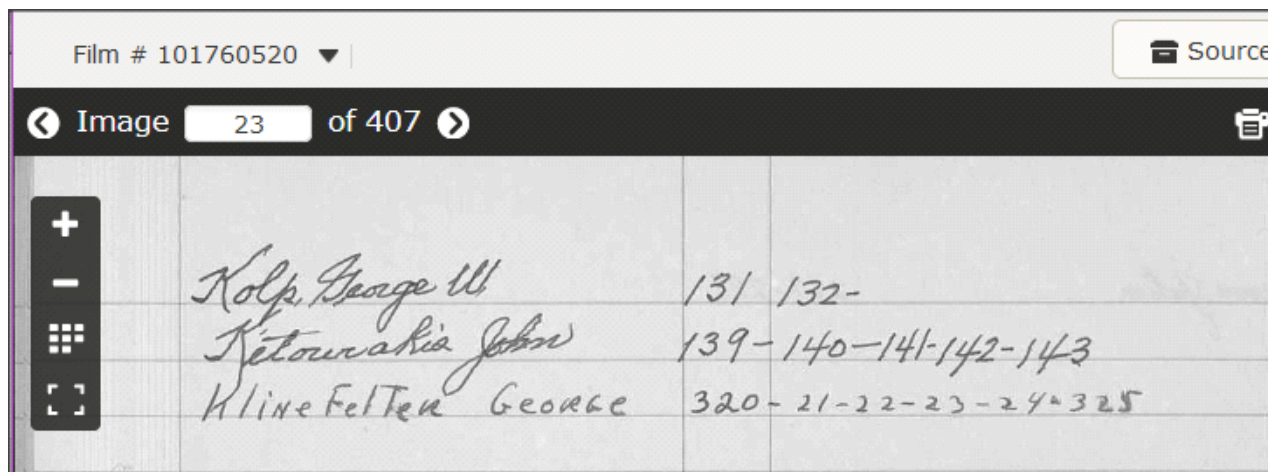 Film # 101760520
Source
Image 23 of 407
Kolp, George W 131 - 132 -
Ketourakis John 139 - 140 - 141 - 142 - 143
KlineFelTer George 320 - 21 - 22 - 23 - 24 - 325